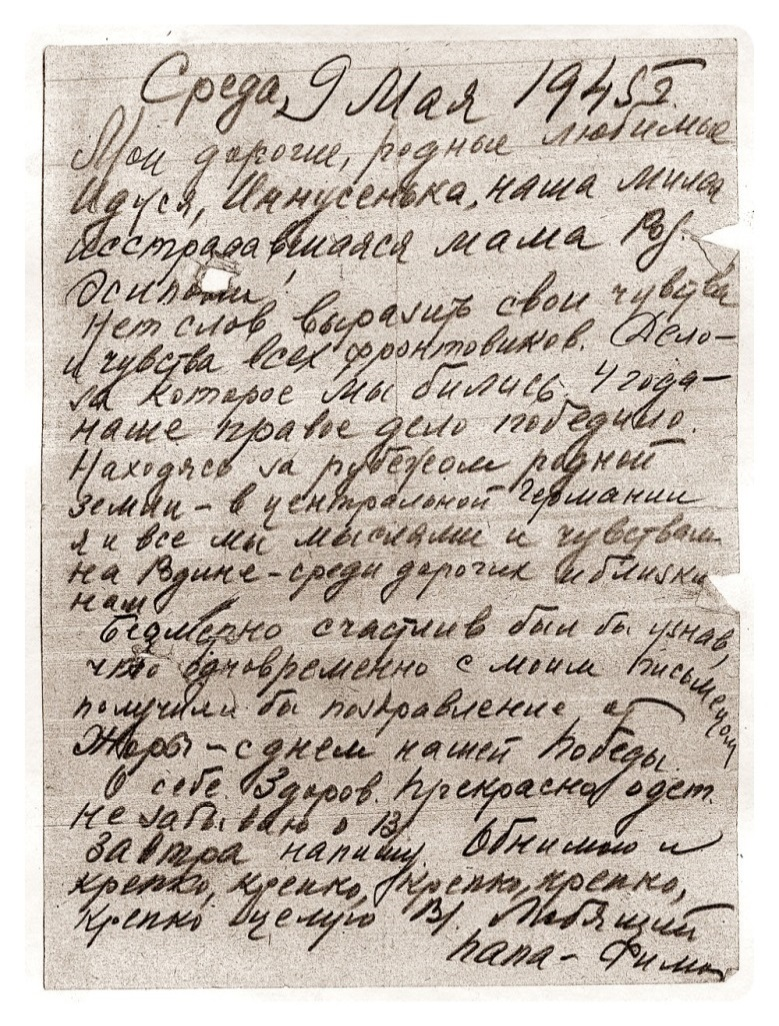 Среда, 9 Мая 1945 г.
Мои дорогие, родные любимые
Идуся, Иннусенька, наша милая
исстрадавшаяся мама
Осиповна!
Нет слов выразить свои чувства
и чувства всех фронтовиков. Дело –
за которое мы бились 4 года –
наше правое дело победило.
Находясь за рубежом родной
земли – в центральной Германии
я и все мы мыслями и чувствами
на Родине – среди дорогих и близких
нам
Безмерно счастлив был бы узнав,
что одновременно с моим письмецом
получили бы поздравление от
Жоры – с днем нашей Победы.
О себе. Здоров. Прекрасно одет.
Не забываю о В.
Завтра напишу. Обнимаю и
крепко, крепко, крепко, крепко,
крепко целую В. Любящий
папа – Фима